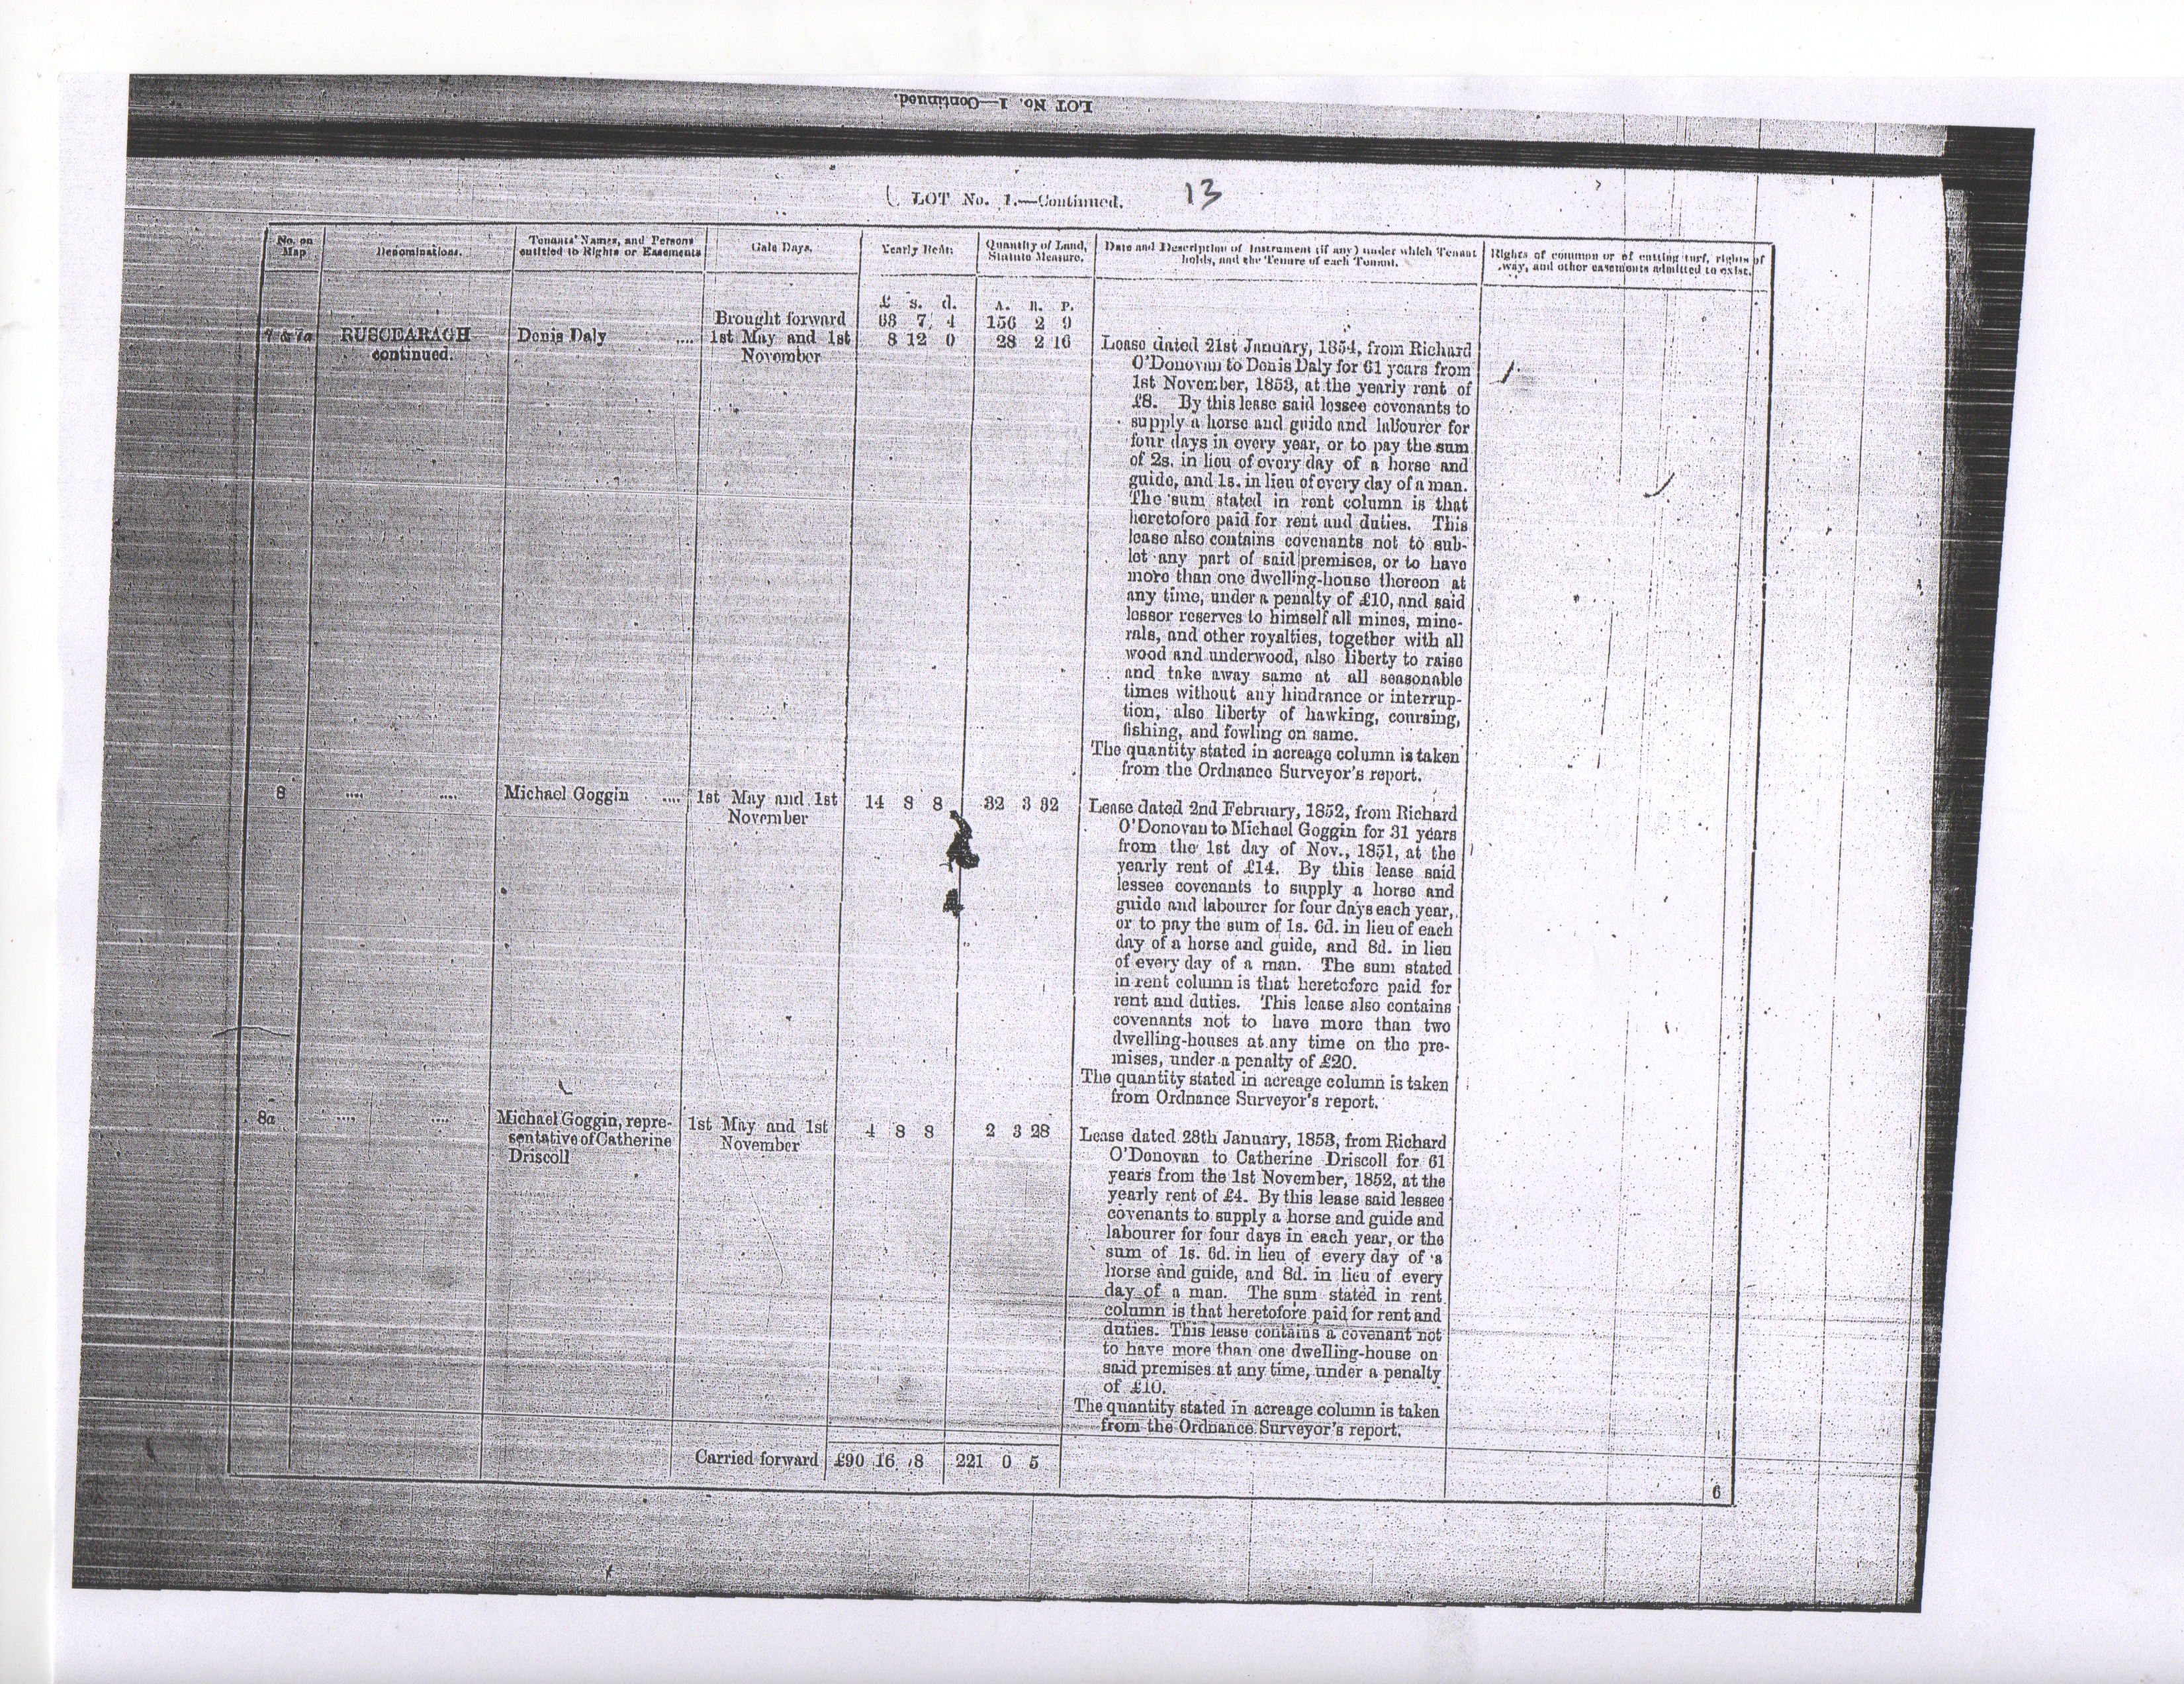 LOT No. 1—Continued.
LOT No. 1.—Continued. 13
No. on Map
Denominations.
Tenants' Names, and Persons
entitled to Rights or Easements
Gale Days.
Yearly Rent.
Quantity of Land,
Statute Measure.
Date and Description of Instrument (if any) under which Tenant
holds, and the Tenure of each Tenant.
Rights of common or of cutting turf, rights of
way, and other easements admitted to exist.
£ s. d. A. R. P.
Brought forward 63 7 4 156 2 9
7 & 7a RUSCEARAGH— Denis Daly .... 1st May and 1st 8 12 0 28 2 16
continued. November
Lease dated 21st January, 1854, from Richard
O'Donovan to Denis Daly for 61 years from
1st November, 1853, at the yearly rent of
£8. By this lease said lessee covenants to
supply a horse and guide and labourer for
four days in every year, or to pay the sum
of 2s. in lieu of every day of a horse and
guide, and 1s. in lieu of every day of a man.
The sum stated in rent column is that
heretofore paid for rent and duties. This
lease also contains covenants not to sub-
let any part of said premises, or to have
more than one dwelling-house thereon at
any time, under a penalty of £10, and said
lessor reserves to himself all mines, mine-
rals, and other royalties, together with all
wood and underwood, also liberty to raise
and take away same at all seasonable
times without any hindrance or interrup-
tion, also liberty of hawking, coursing,
fishing, and fowling on same.
The quantity stated in acreage column is taken
from the Ordnance Surveyor's report.
8 .... .... Michael Goggin .... 1st May and 1st 14 8 8 32 3 32
November
Lease dated 2nd February, 1852, from Richard
O'Donovan to Michael Goggin for 31 years
from the 1st day of Nov., 1851, at the
yearly rent of £14. By this lease said
lessee covenants to supply a horse and
guide and labourer for four days each year,
or to pay the sum of 1s. 6d. in lieu of each
day of a horse and guide, and 8d. in lieu
of every day of a man. The sum stated
in rent column is that heretofore paid for
rent and duties. This lease also contains
covenants not to have more than two
dwelling-houses at any time on the pre-
mises, under a penalty of £20.
The quantity stated in acreage column is taken
from Ordnance Surveyor's report.
8a .... .... Michael Goggin, repre- 1st May and 1st 4 8 8 2 3 28
sentative of Catherine November
Driscoll
Lease dated 28th January, 1853, from Richard
O'Donovan to Catherine Driscoll for 61
years from the 1st November, 1852, at the
yearly rent of £4. By this lease said lessee
covenants to supply a horse and guide and
labourer for four days in each year, or the
sum of 1s. 6d. in lieu of every day of a
horse and guide, and 8d. in lieu of every
day of a man. The sum stated in rent
column is that heretofore paid for rent and
duties. This lease contains a covenant not
to have more than one dwelling-house on
said premises at any time, under a penalty
of £10.
The quantity stated in acreage column is taken
from the Ordnance Surveyor's report.
Carried forward £90 16 8 221 0 5
6